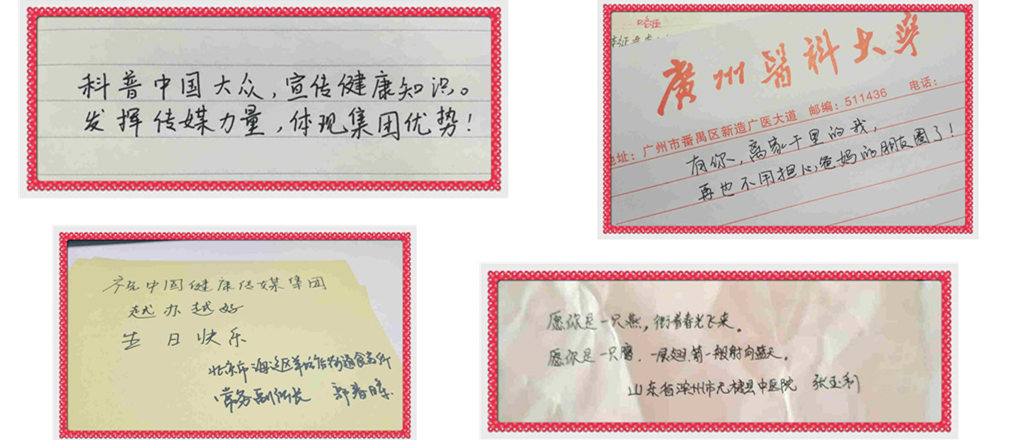 科普中国大众，宣传健康知识。
发挥传媒力量，体现集团优势！
廣州醫科大學
地址：广州市番禺区新造广医大道 邮编：511436 电话：
有你，离家千里的我，
再也不用担心爸妈的朋友圈了！
中国健康传媒集团
越办越好
生日快乐
北京市海淀区羊坊店药械食品所
常务副所长
愿你是一只燕，衔着春光飞来。
愿你是一只鹰，一展翅，箭一般射向蓝天。
山东省滨州市无棣县中医院 张玉利